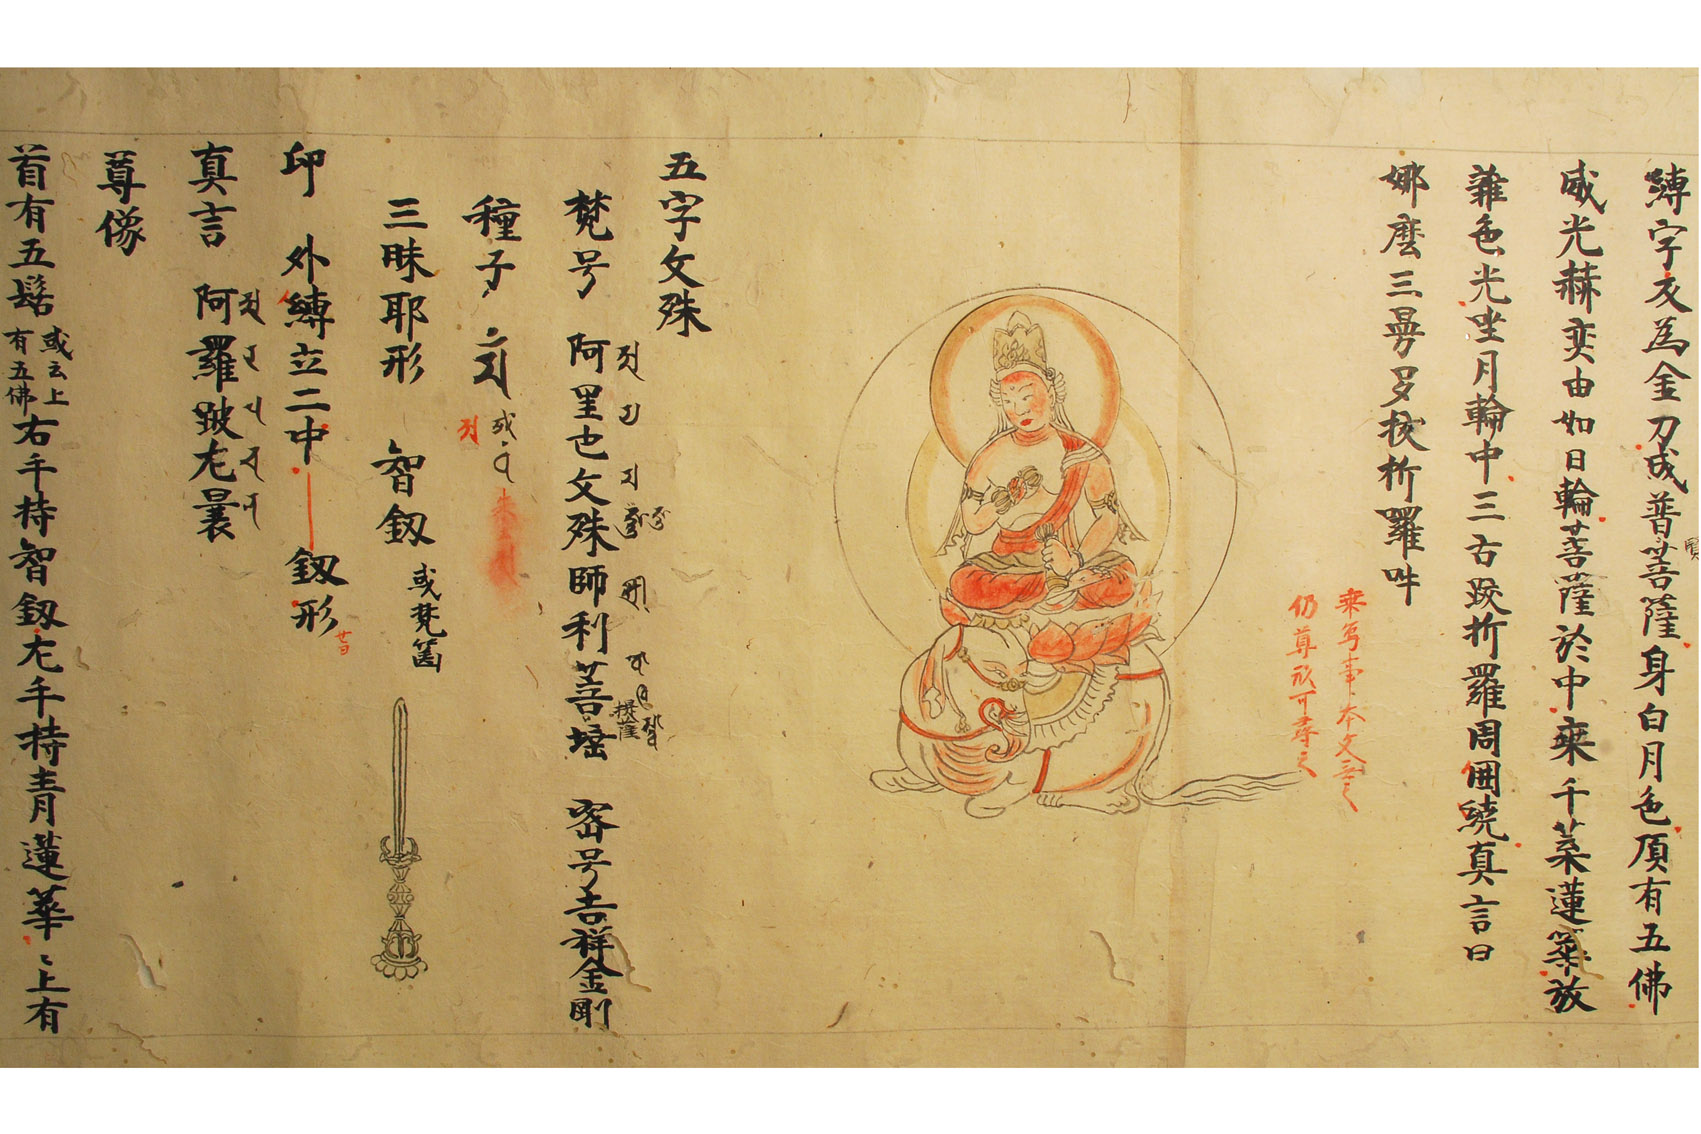 縛字文為金刀成普菩薩身白月色頂有五佛
賢
威光赫奕由如日輪菩薩於中乗千葉蓮華放
雜色光坐月輪中三古跋折羅周囲繞真言曰
娜麼三曼多拔折羅吽
乗
仍尊形可尋之
五字文殊
梵号 阿里也文殊師利菩 密号吉祥金剛
提薩
種子
或
三昧耶形 智釼 或梵篋
印 外縛立二中 釼形
真言 阿羅跛左曩
尊像
首有五髻 或云上 有五佛 右手持智釼左手持青蓮華々上有